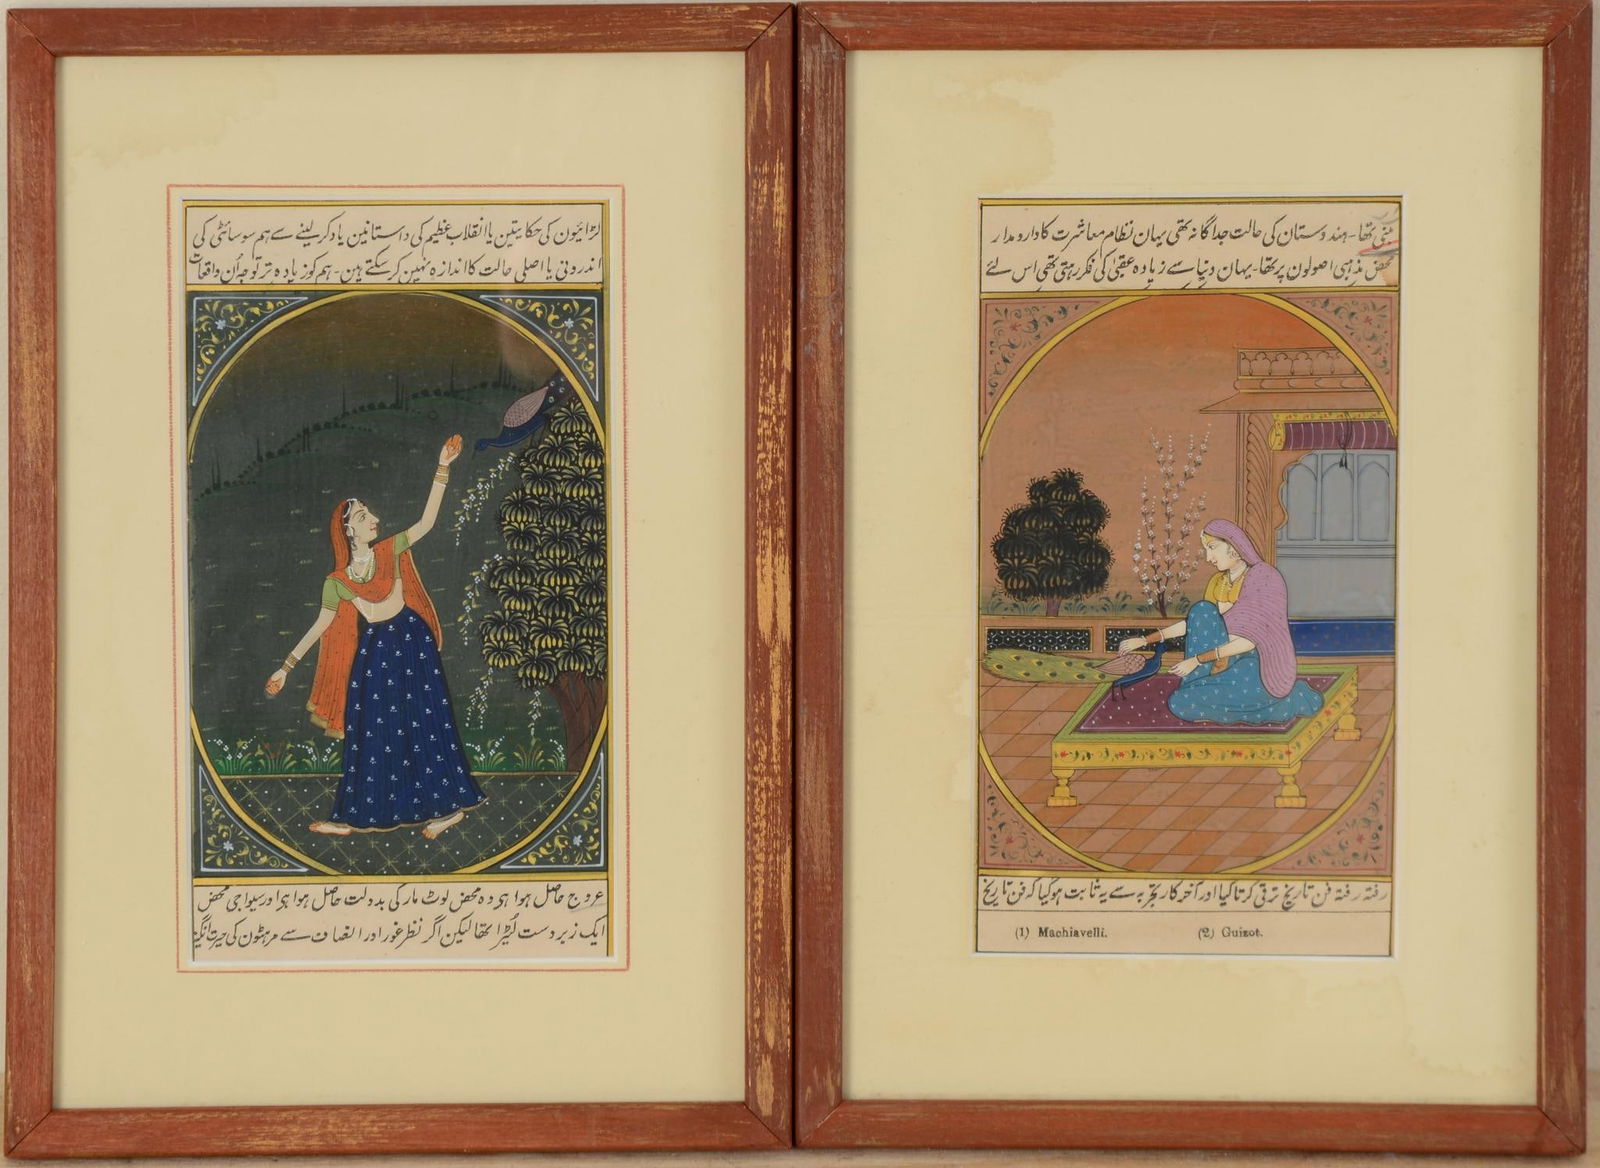 لڑائیون کی حکایتین یا انقلاب عظیم کی داستانین یاد کر لینے سے ہم سوسائٹی کی
اندرونی یا اصلی حالت کا اندازہ نہین کر سکتے ہین۔ ہم کو زیادہ تر توجہ اُن واقعات
عروج حاصل ہوا ہو وہ محض لوٹ مار کی بدولت حاصل ہوا ہو اور سیواجی محض
ایک زبردست لُٹیرا تھا لیکن اگر نظر غور اور انصاف سے مرہٹون کی حیرت انگیز
مبنی تھا۔ ہندوستان کی حالت جداگانہ تھی یہان نظام معاشرت کا دارومدار
محض مذہبی اصولون پر تھا۔ یہان دنیا سے زیادہ عقبیٰ کی فکر رہتی تھی اس لئے
رفتہ رفتہ فن تاریخ ترقی کرتا گیا اور آخر کار تجربہ سے یہ ثابت ہو گیا کہ فن تاریخ
(1) Machiavelli. (2) Guizot.